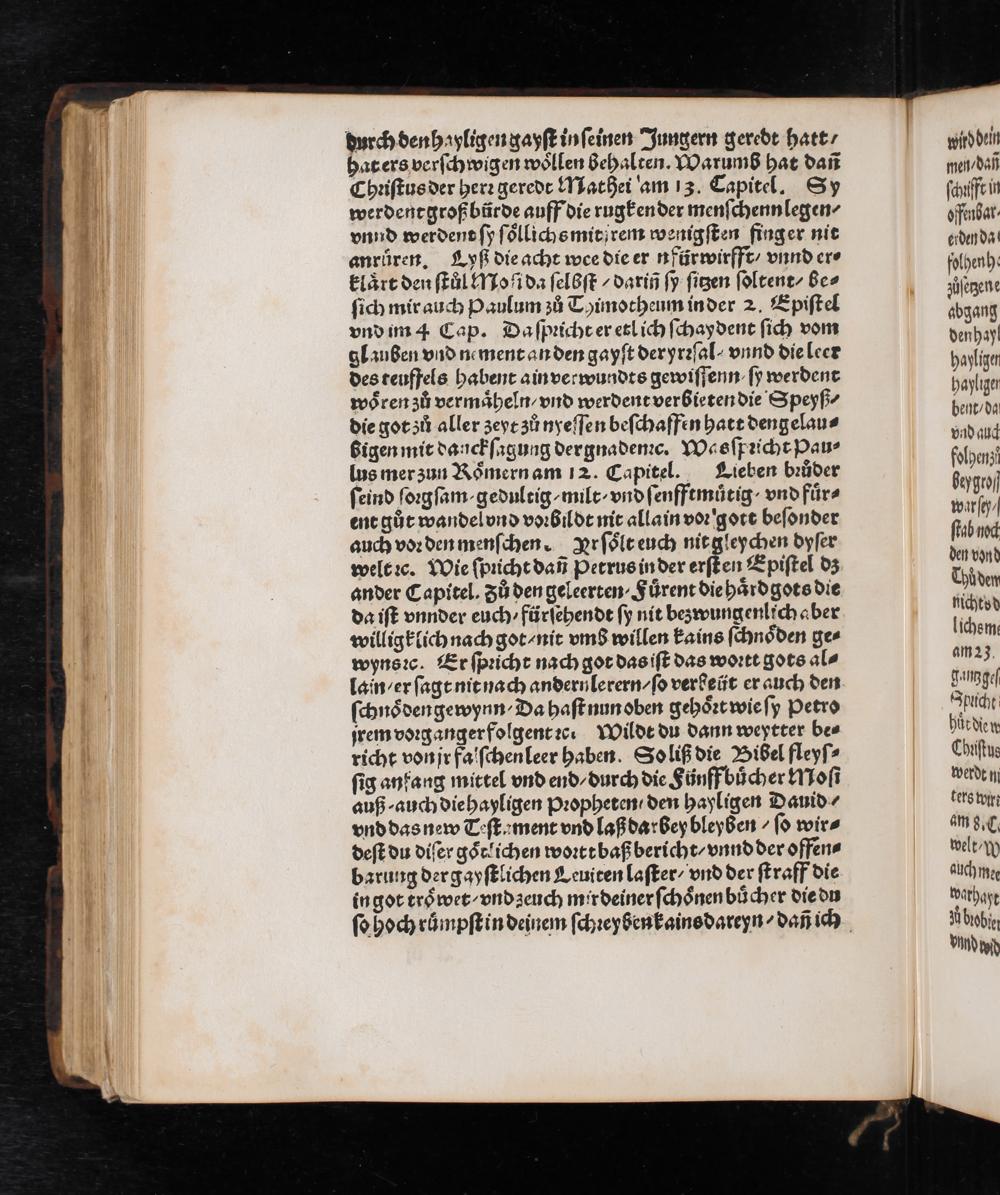 durch den hayligen gayſt in ſeinen Jungern geredt hatt/
hat ers verſchwigen woͤllen behalten. Warumb hat dañ
Chriſtus der herꝛ geredt Mathei am 13. Capitel. Sy
werdent groß buͤrde auff die rugken der menſchenn legen/
vnnd werdent ſy ſoͤllichs mit jrem wenigſten finger nit
anruͤren. Lyß die acht wee die er n fürwirfft/ vnnd er⸗
klaͤrt den ſtuͦl Moſi da ſelbſt / dariñ ſy ſitzen ſoltent/ Be⸗
ſich mir auch Paulum zuͦ Thimotheum in der 2. Epiſtel
vnd im 4 Cap. Da ſpꝛicht er etlich ſchaydent ſich vom
glauben vnd nement an den gayſt der yrꝛſal/ vnnd die leer
des teuffels habent ain verwundts gewiſſenn/ ſy werdent
woͤren zuͦ vermaͤheln/ vnd werdent verbieten die Speyß/
die got zuͦ aller zeyt zuͦ nyeſſen beſchaffen hatt den gelau⸗
bigen mit danckſagung der gnaden ꝛc. Was ſpꝛicht Pau⸗
lus mer zun Roͤmern am 12. Capitel. Lieben bꝛuͤder
ſeind ſoꝛgſam/ gedultig/ milt/ vnd ſenfftmuͤtig/ vnd fuͤr⸗
ent guͦt wandel vnd voꝛbildt nit allain voꝛ gott beſonder
auch voꝛ den menſchen. Yr ſoͤlt euch nit gleychen dyſer
welt ꝛc. Wie ſpꝛicht dañ Petrus in der erſten Epiſtel dz
ander Capitel. Zuͦ den geleerten/ Fuͤrent die haͤrd gots die
da iſt vnnder euch/ fürſehendt ſy nit bezwungenlich aber
willigklich nach got/ nit vmb willen kains ſchnoͤden ge⸗
wyns ꝛc. Er ſpꝛicht nach got das iſt das woꝛtt gots al⸗
lain/ er ſagt nit nach andern lerern/ ſo verbeüt er auch den
ſchnoͤden gewynn/ Da haſt nun oben gehoͤꝛt wie ſy Petro
jrem voꝛganger folgent ꝛc. Wildt du dann weytter be⸗
richt von jr falſchen leer haben. So liß die Bibel fleyſ⸗
ſig anfang mittel vnd end/ durch die Fünff buͤcher Moſi
auß / auch die hayligen Pꝛopheten/ den hayligen Dauid /
vnd das new Teſtament vnd laß darbey bleyben / ſo wir⸗
deſt du diſer goͤtlichen woꝛtt baß bericht/ vnnd der offen⸗
barung der gayſtlichen Leuiten laſter/ vnd der ſtraff die
in got troͤwet/ vnd zeuch mir deiner ſchoͤnen buͤcher die du
ſo hoch ruͤmpſt in deinem ſchꝛeyben kains dareyn / dañ ich